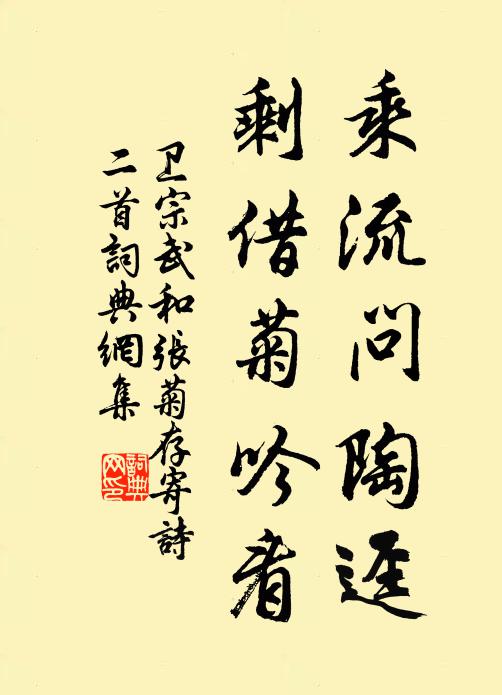 乘流問陶逕
剩借菊吟看
卫宗武和張菊存寄詩
二首詞典網集
詞典网印